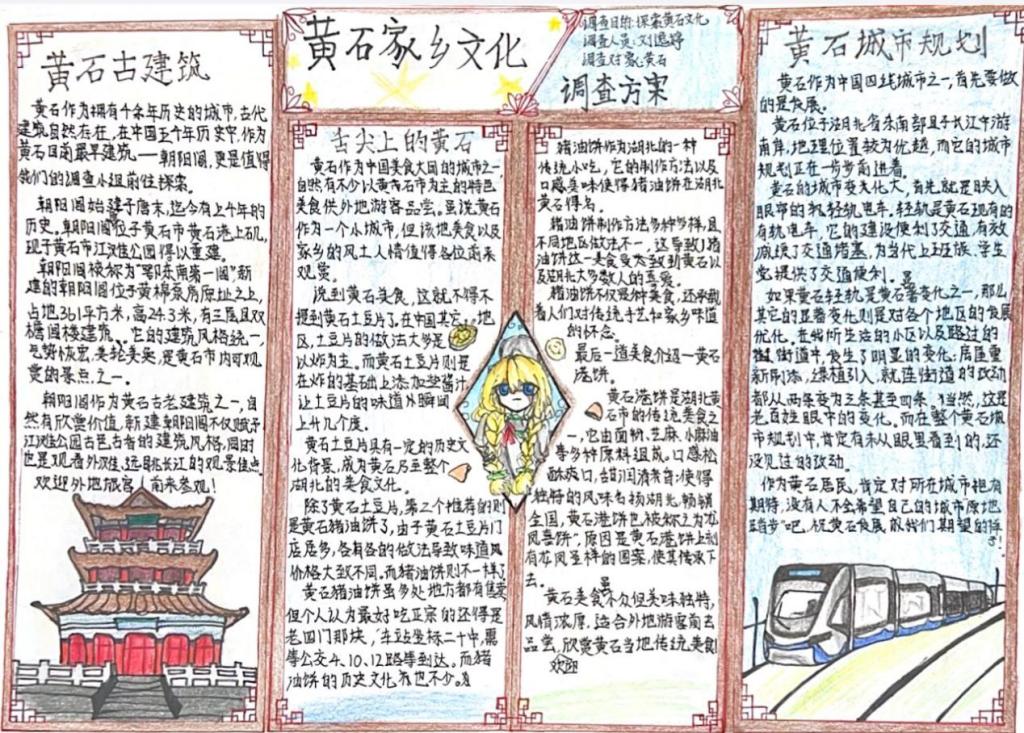 黄石家乡文化
调查目的:探索黄石文化
调查人员:刘
调查对象:黄石
调查方案
黄石古建筑
黄石作为拥有千余年历史的城市,古代
建筑自然存在,在中国五千年历史中,作为
黄石目前最早建筑——朝阳阁,更是值得
我们的调查小组前往探索。
朝阳阁始建于唐末,迄今有上千年的
历史。朝阳阁位于黄石市黄石港上矶,
现于黄石市江滩公园得以重建。
朝阳阁被称为“鄂东南第一阁”新
建的朝阳阁位于黄棉泵房原址之上,
占地361平方米,高24.3米,有三层且双
檐阁楼建筑。它的建筑风格统一,
气势恢宏,美轮美奂,是黄石市内可观
赏的景点之一。
朝阳阁作为黄石古老建筑之一,自
然有欣赏价值,新建朝阳阁不仅赋予
江滩公园古色古香的建筑风格,同时
也是观看外滩,远眺长江的观景佳点
欢迎外地旅客前来参观!
舌尖上的黄石
黄石作为中国美食大国的城市之一,
自然有不少以黄石市为主的特色
美食供外地游客品尝。虽说黄石
作为一个小城市,但该地美食以及
家乡的风土人情值得各位前来
观赏。
说到黄石美食,这就不得不
提到黄石土豆片了,在中国其它地
区,土豆片的做法大多是
以炸为主。而黄石土豆片则是
在炸的基础上添加些酱汁,
让土豆片的味道瞬间
上升几个度。
黄石土豆片具有一定的历史文
化背景,成为黄石乃至整个
湖北的美食文化。
除了黄石土豆片,第二个推荐的则
是黄石猪油饼了,由于黄石土豆片门
店居多,各有各的做法导致味道及
价格大致不同。而猪油饼则不一样了
黄石猪油饼虽多处地方都有售卖
但个人认为最好吃正宗的还得是
老四门那块,车站坐标二十中,需
等公交4、10、12路等到达。而猪
油饼的历史文化
猪油饼作为湖北的一种
传统小吃,它的制作方法以及
口感美味使得猪油饼在湖北
黄石得名。
猪油饼制作方法多种多样,且
不同地区做法不一,这导致了猪
油饼这一美食受大致到黄石以
及湖北大多数人的喜爱。
猪油饼不仅是种美食,还承载
着人们对传统手艺和家乡味道
的怀念。
最后一道美食介绍——黄石
港饼。
黄石港饼是湖北黄
石市的传统美食之
一,它由面粉、芝麻、小麻油
等多种原料组成。口感松
酥爽口,甜润清香,使得
独特的风味名扬湖北,畅销
全国,黄石港饼也被称之为“龙
凤喜饼”,原因是黄石港饼上刻
有龙凤呈祥的图案,使其传承下
去。
黄石美食虽不众但美味独特,
风情浓厚,适合外地游客前去
品尝,欣赏黄石当地传统美食
欢迎
黄石城市规划
黄石作为中国四线城市之一,首先要做
的是发展。
黄石位于湖北省东南部且于长江中游
南岸,地理位置较为优越,而它的城市
规划正在一步步前进着。
黄石的城市变化大,首先就是映入
眼帘的轻轨电车。轻轨是黄石现有的
有轨电车,它的建设便利了交通,有效
减缓了交通堵塞,为当代上班族、学生
党提供了交通便利。
如果黄石轻轨是黄石显著变化之一,那么
其它的显著变化则是对各个地区的发展
优化。在我所生活的小区以及路过的
街道中,发生了明显的变化,居屋重
新刷漆,绿植引入,就连街道的改动
都从两条变为三条甚至四条。当然,这是
老百姓眼中的变化。而在整个黄石城
市规划中,肯定有未从眼里看到的,还
没见过的改动。
作为黄石居民,肯定对所在城市抱有
期待,没有人不会希望自己的城市“原地
踏步”吧,祝黄石发展成我们期望的样
子!